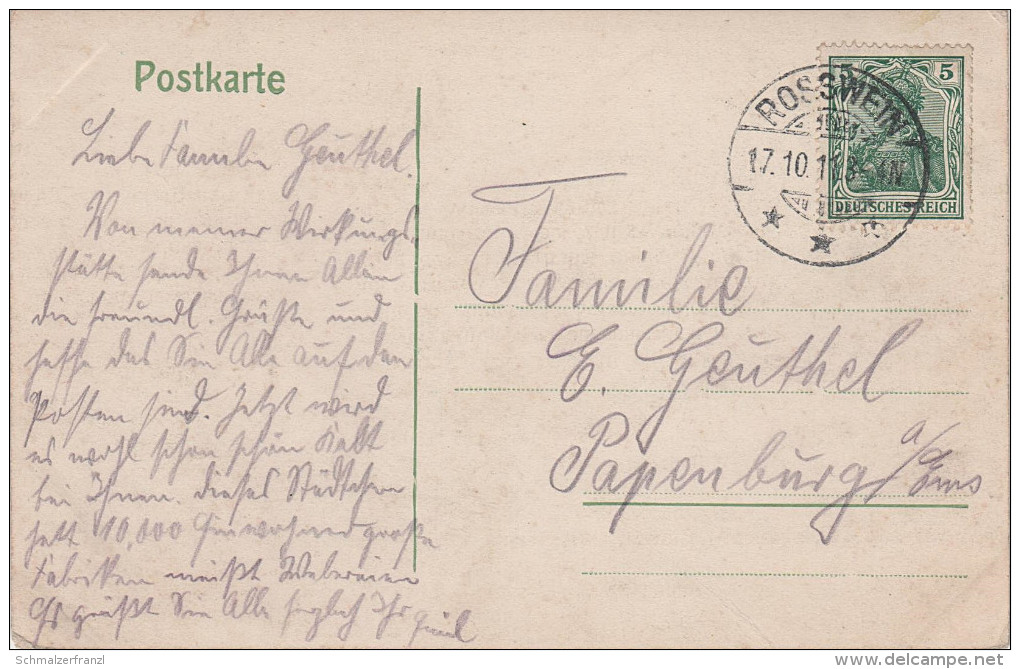 Postkarte
5
ROSSWEIN
17.10.11.
DEUTSCHES REICH
Liebe Familie Geuthel.
Von meiner Wirkungs-
stätte sende Ihnen Allen
die freundl. Grüße und
hoffe das Sie Alle auf den
Posten sind. Jetzt wird
es wohl schon schön kalt
bei Ihnen. dieses Städtchen
hatt 10,000 Einwohner große
Fabriken meißt Webereien
Es grüßt Sie Alle herzlich Ihr
Familie
E. Geuthel
Papenburg a/Ems
Schmalzerfranzl
delcampe.net